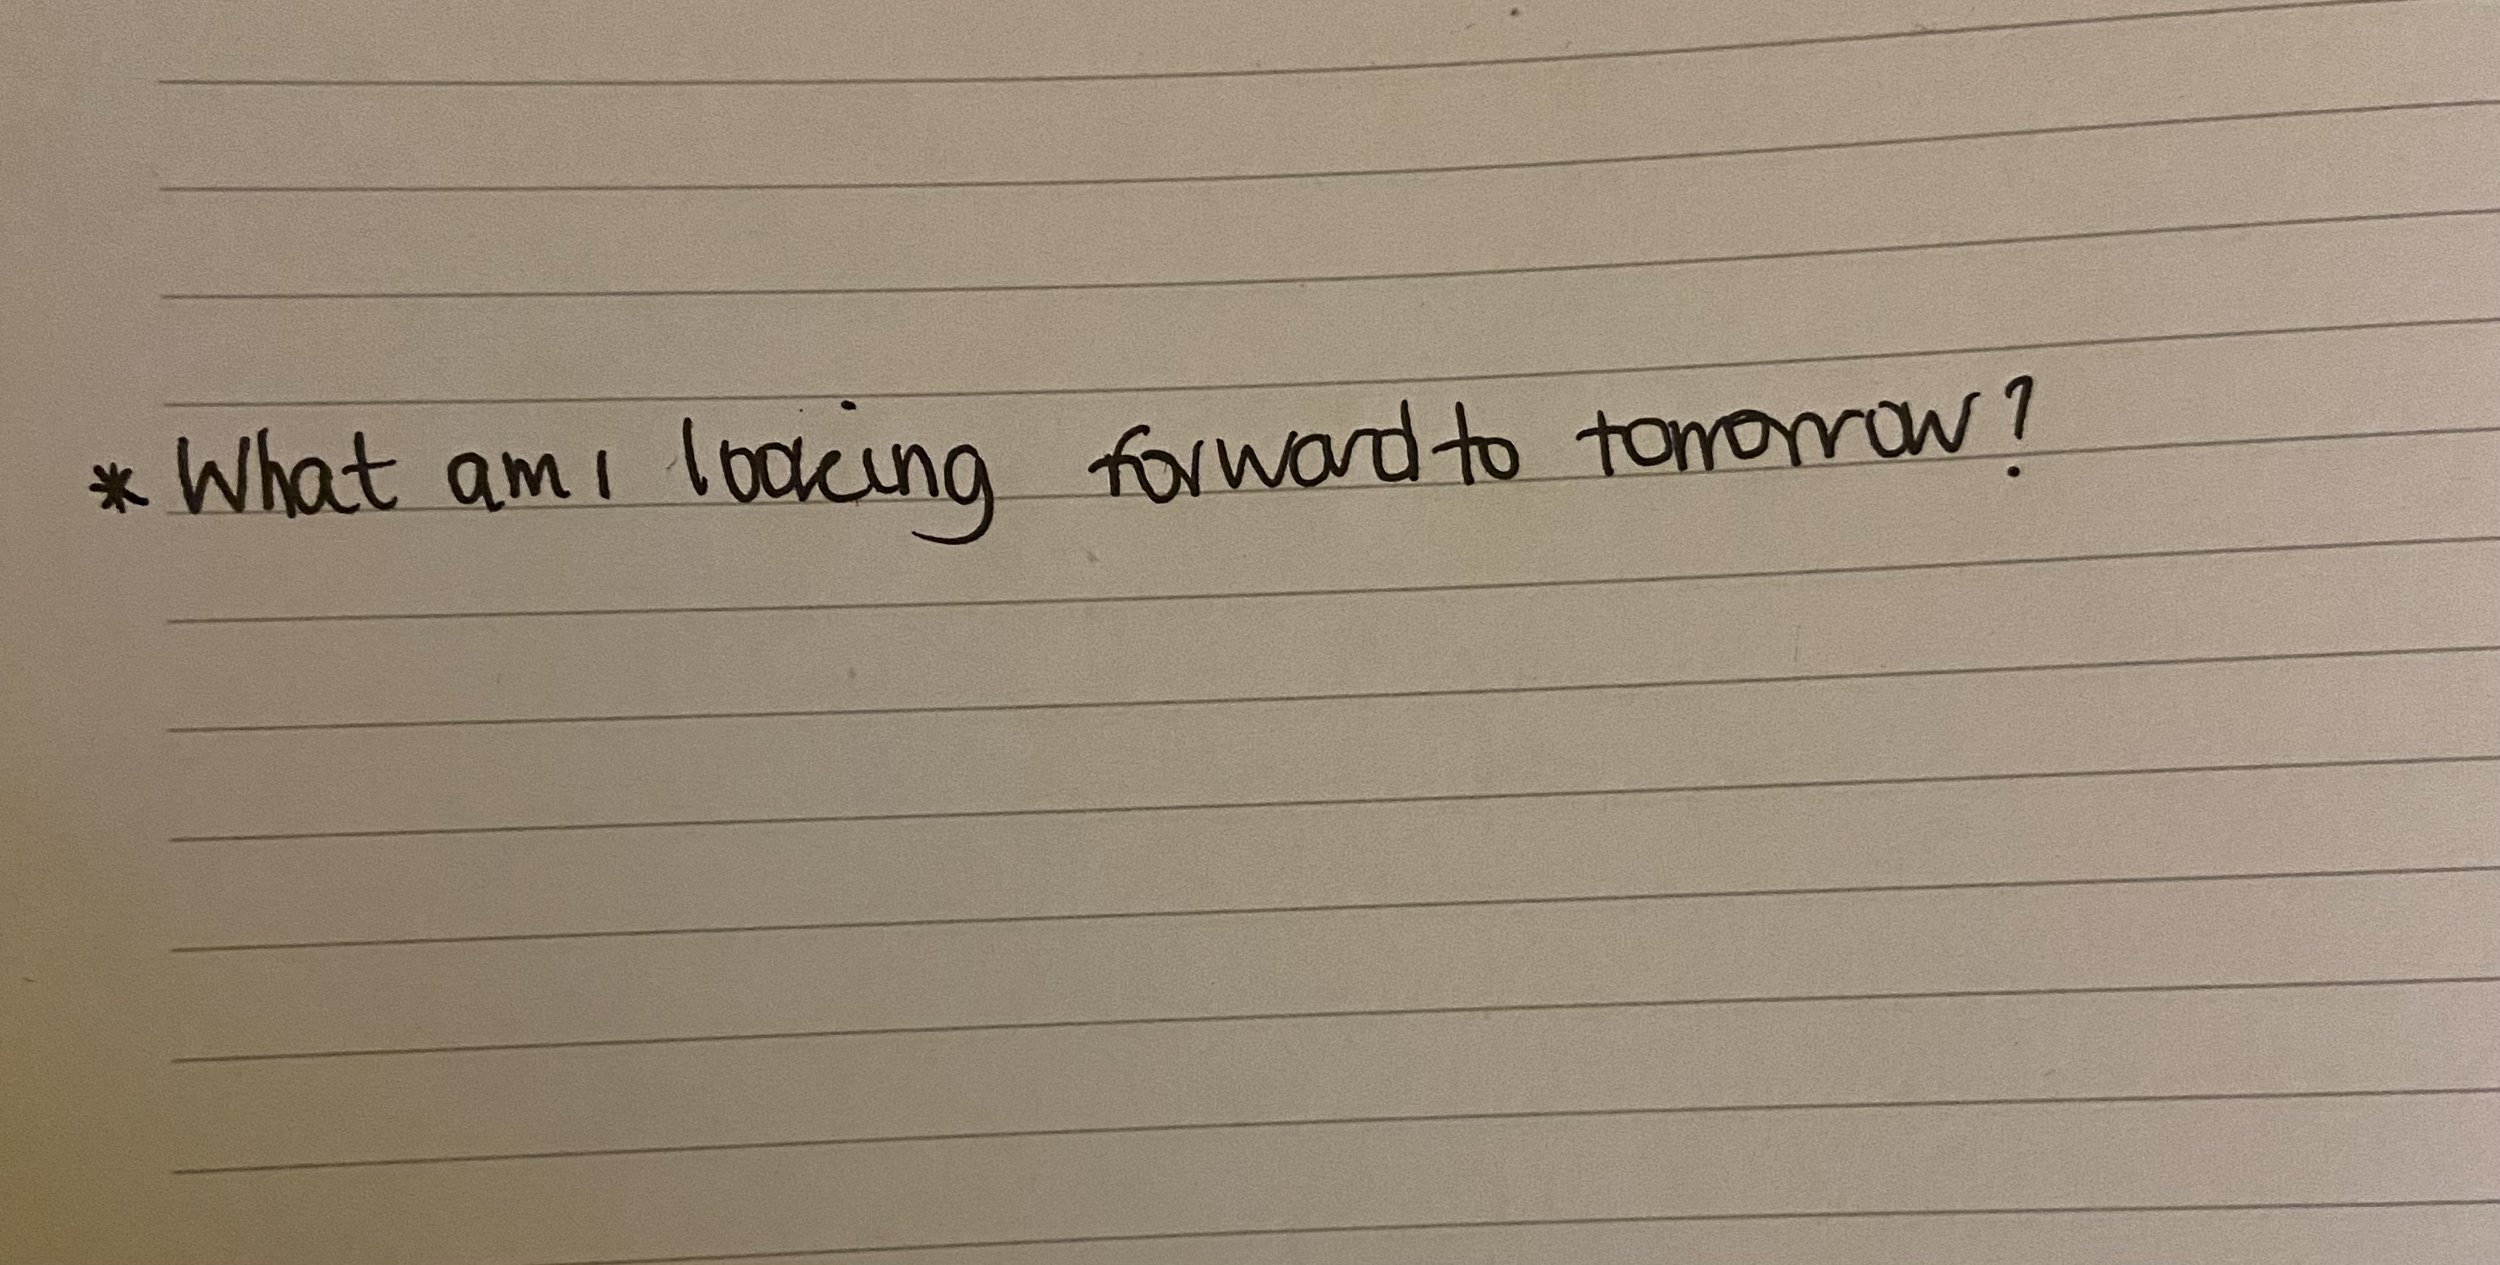 * What am I looking forward to tomorrow?